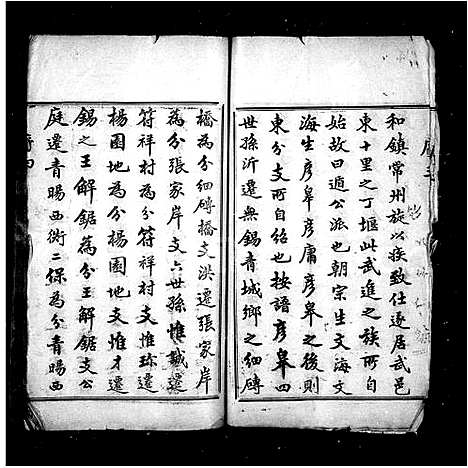 和鎮常州旋以疾致仕遂居武邑
東十里之丁堰此武進之族所自
始故曰遁公派也朝宗生文海文
海生彥皋彥庸彥皋之後則
東分支所自紿也按譜彥皋四
世孫沂遷無錫青城鄉之細磚
橋為分細磚橋支洪遷張家岸
為分張家岸支六世孫惟誠遷
符祥村為分符祥村支惟珍遷
楊園地為分楊園地支惟才遷
錫之王解鋸為分王解鋸支公
庭遷青暘西街二保為分青暘西